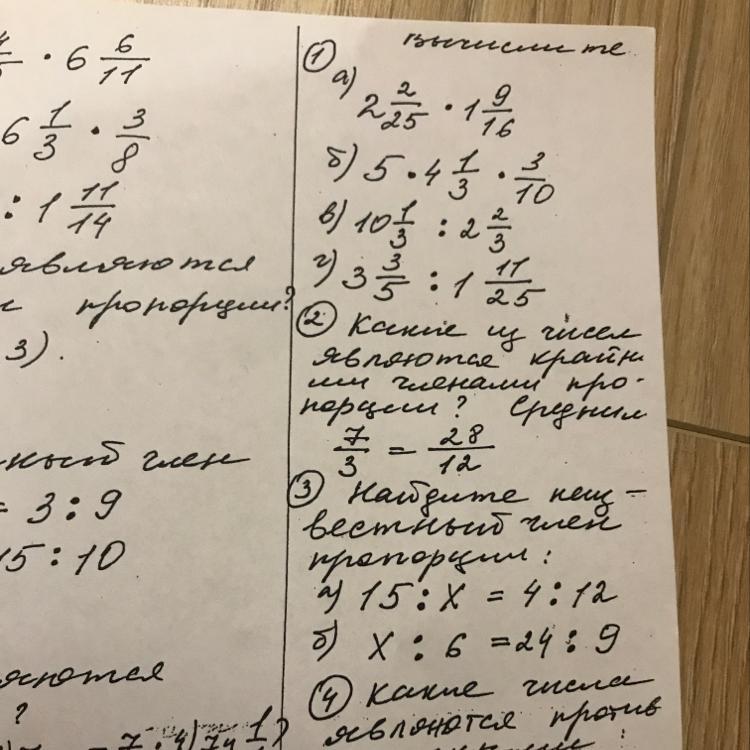 · 6 6/11
6 1/3 · 3/8
: 1 11/14
являются
пропорции?
3).
член
= 3 : 9
15 : 10
?
① Вычислите
а) 2 2/25 · 1 9/16
б) 5 · 4 1/3 · 3/10
в) 10 1/3 : 2 2/3
г) 3 3/5 : 1 11/25
② Какие из чисел
являются крайни
ми членами про-
порции? Средним
7/3 = 28/12
③ Найдите неиз-
вестный член
пропорции:
а) 15 : х = 4 : 12
б) х : 6 = 24 : 9
④ Какие числа
являются против